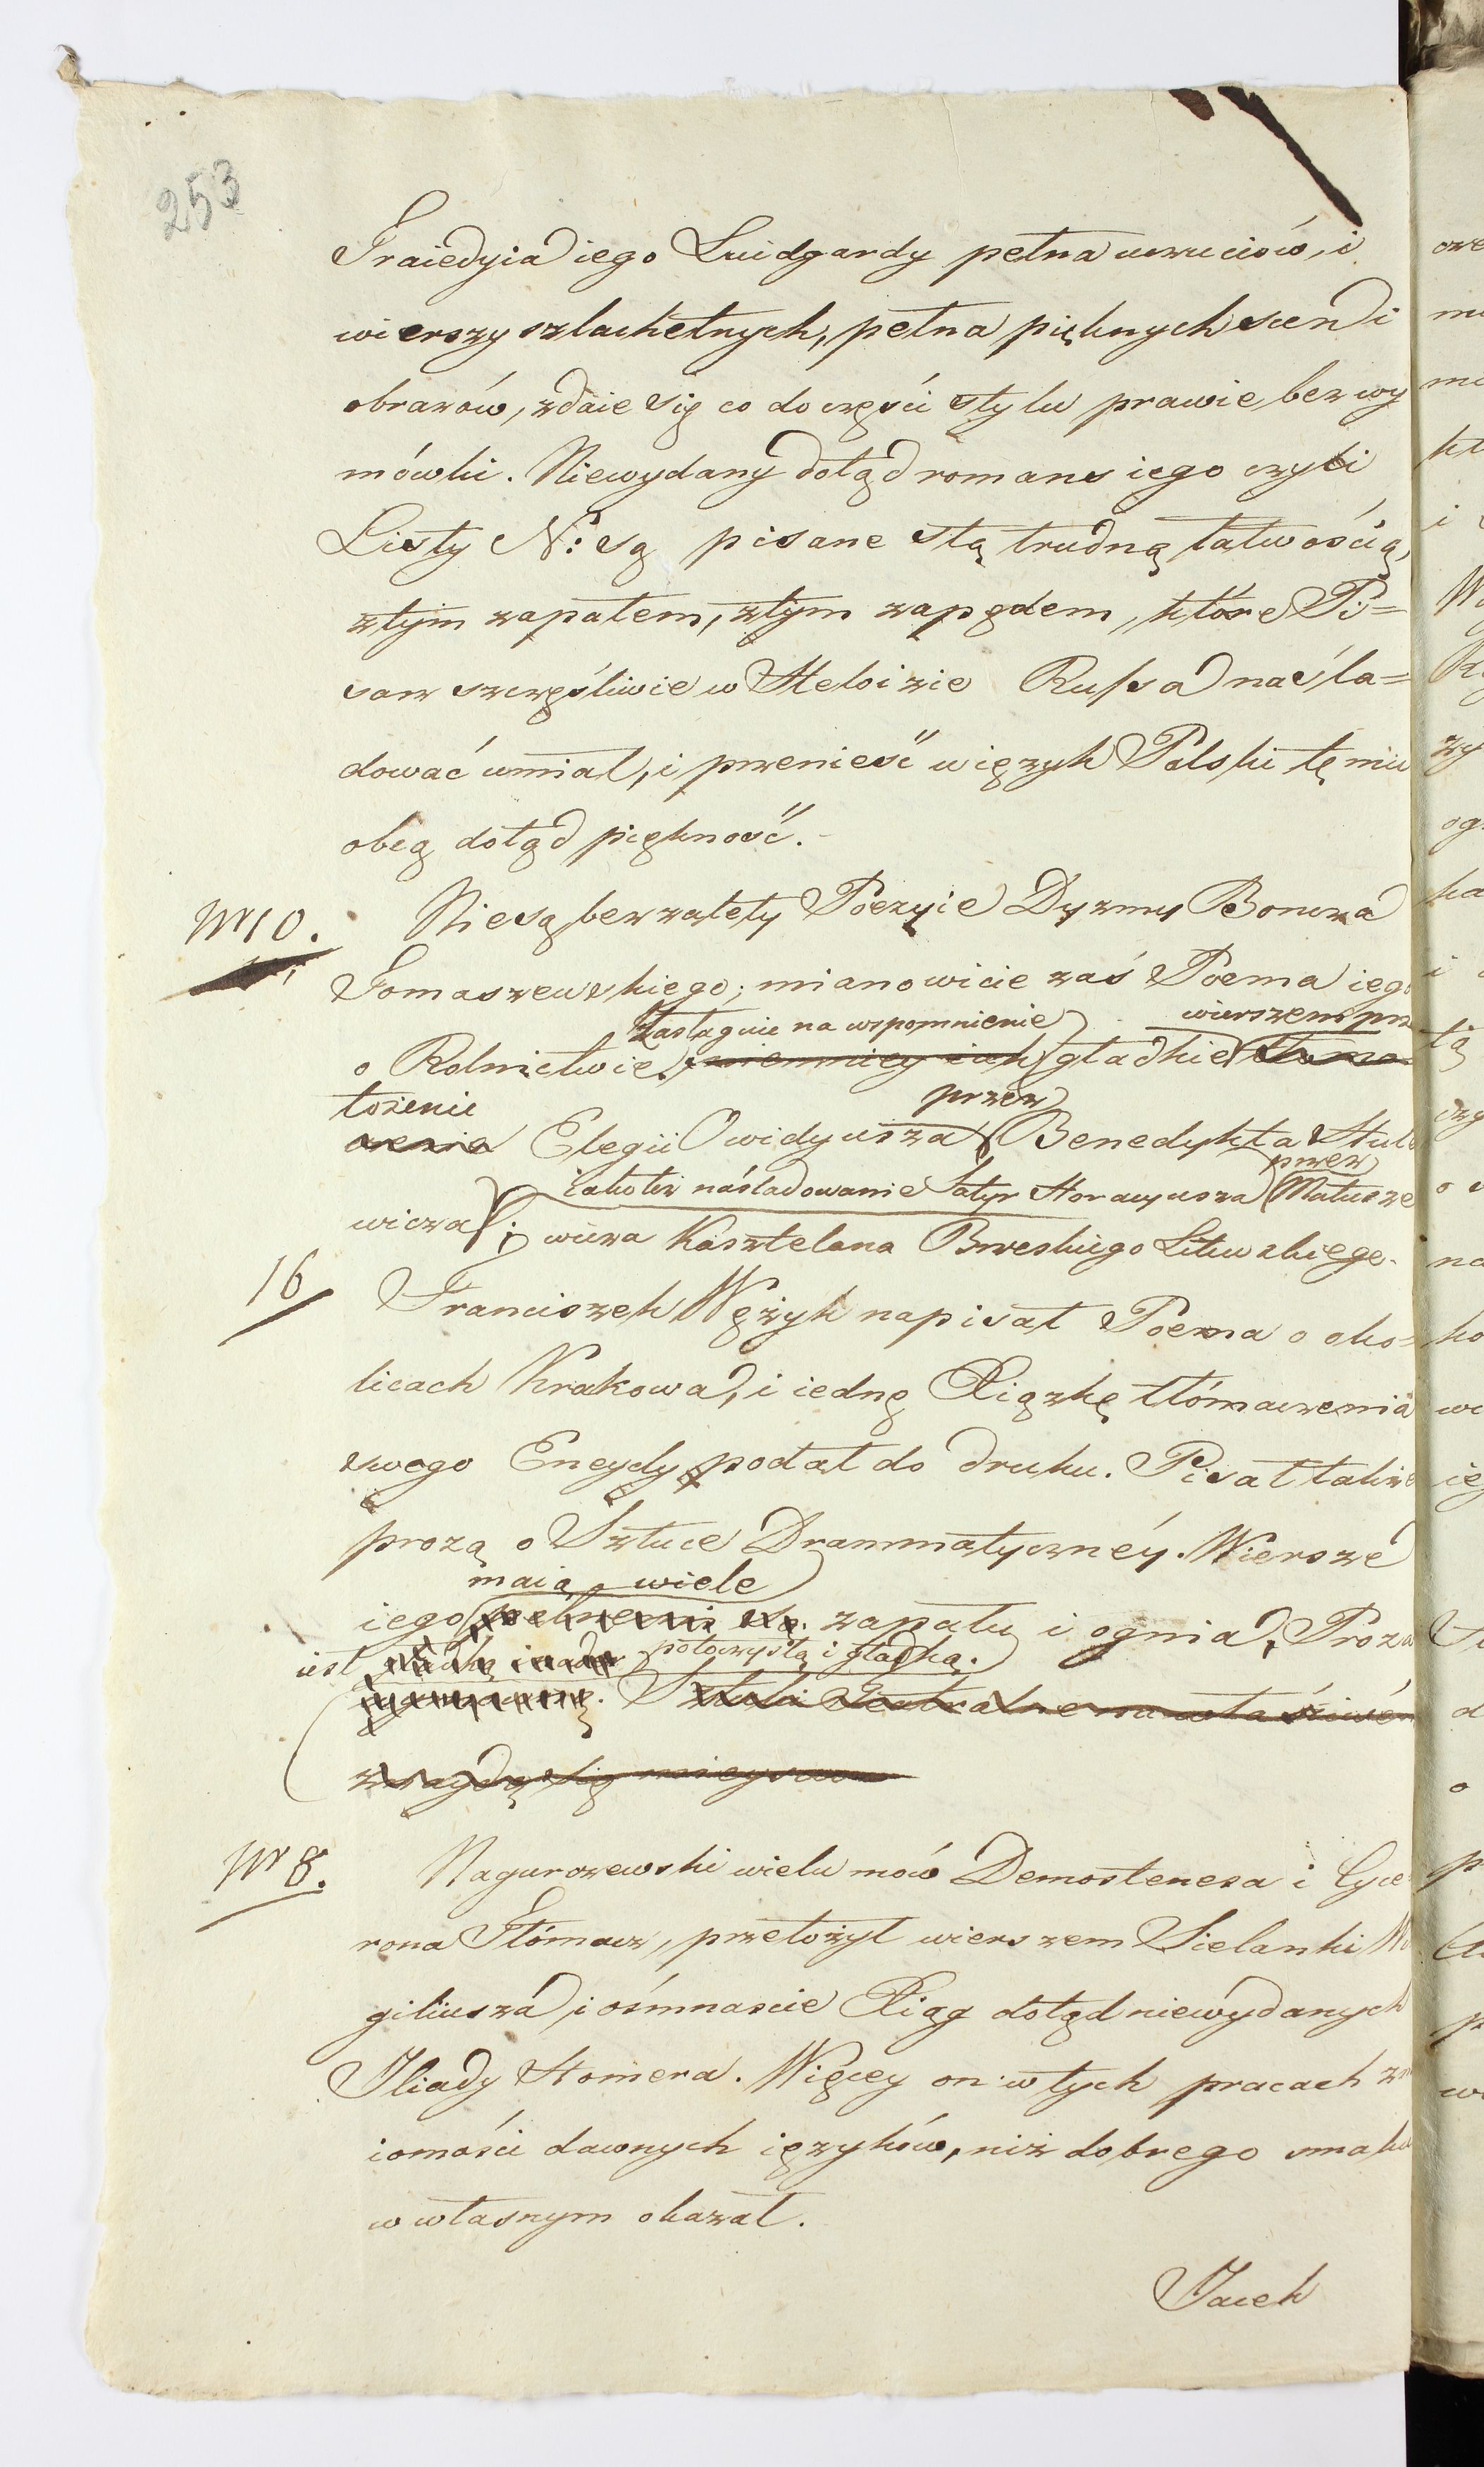 253
Traiedyia iego Luidgardy pełna uczuciów, i
wierszy szlachetnych, pełna pięknych scen i
obrazów, zdaie się co do części stylu prawie bez wy
mówki. Niewydany dotąd romans iego czyli
Listy N: są pisane z tą trudną łatwością,
z tym zapałem, z tym zapędem, które Pi=
sarz szczęśliwie w Heloizie Russa naśla=
dować umiał, i przenieść w ięzyk Polski tę niu
obcą dotąd piękność.
Nr 10. Nie są bez zalety Poezyie Dyzmy Boncza
Tomaszewskiego; mianowicie zaś Poema iego
zasługuie na wspomnienie wierszem prze
o Rolnictwie. niemniey iak gładkie tłoma
łożenie przez
czenia Elegii Owidyusza Benedykta Hule
iakoteż naśladowanie Satyr Horacyusza przez Matusze
wicza i wicza Kasztelana Brzeskiego Litewskiego.
16 Franciszek Wężyk napisał Poema o oko=
licach Krakowa, i iedną Xiążkę tłómaczenia
swego Eneydy podał do druku. Pisał także
prozą o Sztuce Drammatyczney. Wiersze
maią wiele
iego zapału i ognia, Proza
iest potoczystą i gładką.
Sztuki Teatralne na właściwém
znaydą się mieyscu
Nr 8. Nagurczewski wielu mów Demostenesa i Cyce
rona Tłómacz, przełożył wierszem Sielanki Wi
giliusza i ośmnaście Xiąg dotąd niewydanych
Iliady Homera. Więcey on w tych pracach zna
iomości dawnych ięzyków, niż dobrego smaku
w własnym okazał.
Jacek